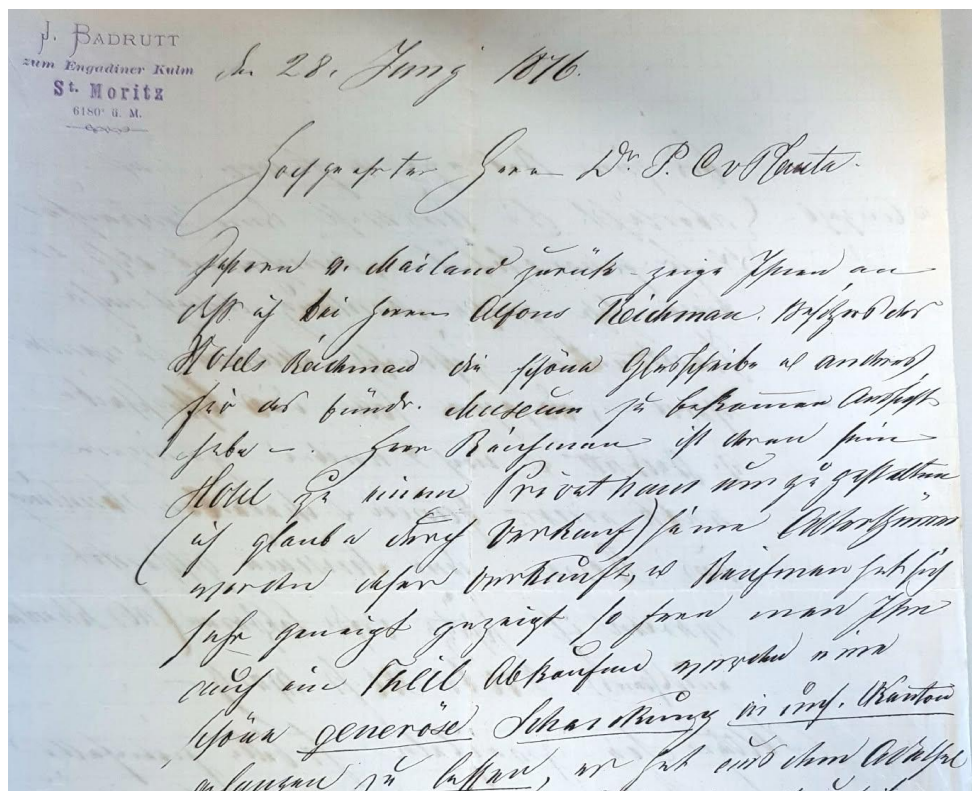 J. BADRUTT
zum Engadiner Kulm
St. Moritz
6180' ü. M.
den 28. Juny 1876.
Hochgeehrter Herr Dr. P. C v Planta.
Gestern v. Mailand zurück zeige Ihnen an
daß ich bei Herrn Alfons Reichman. Besitzer des
Hotels Reichman die schöne Glasscheibe et anderes
für das bündr. Museum zu bekommen Aussicht
habe –. Herr Reichman ist daran sein
Hotel zu einem Privathaus umzugestalten
(ich glaube durch Verkauf) seine Alterthümer
werden daher verkauft, Reichman hat sich
sehr geneigt gezeigt so fern man Ihm
auch ein Theil Abkaufen werden eine
schöne generöse Schankung in uns. Kanton
gelangen zu lassen, er hat aus dem